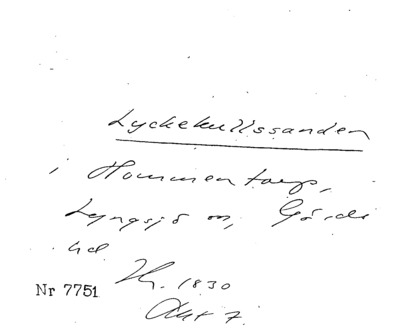 Lyckekullssanden
i Hommentorp,
Lyngsjö sn, Gärds
hd
Hr. 1830
Akt 7.
Nr 7751